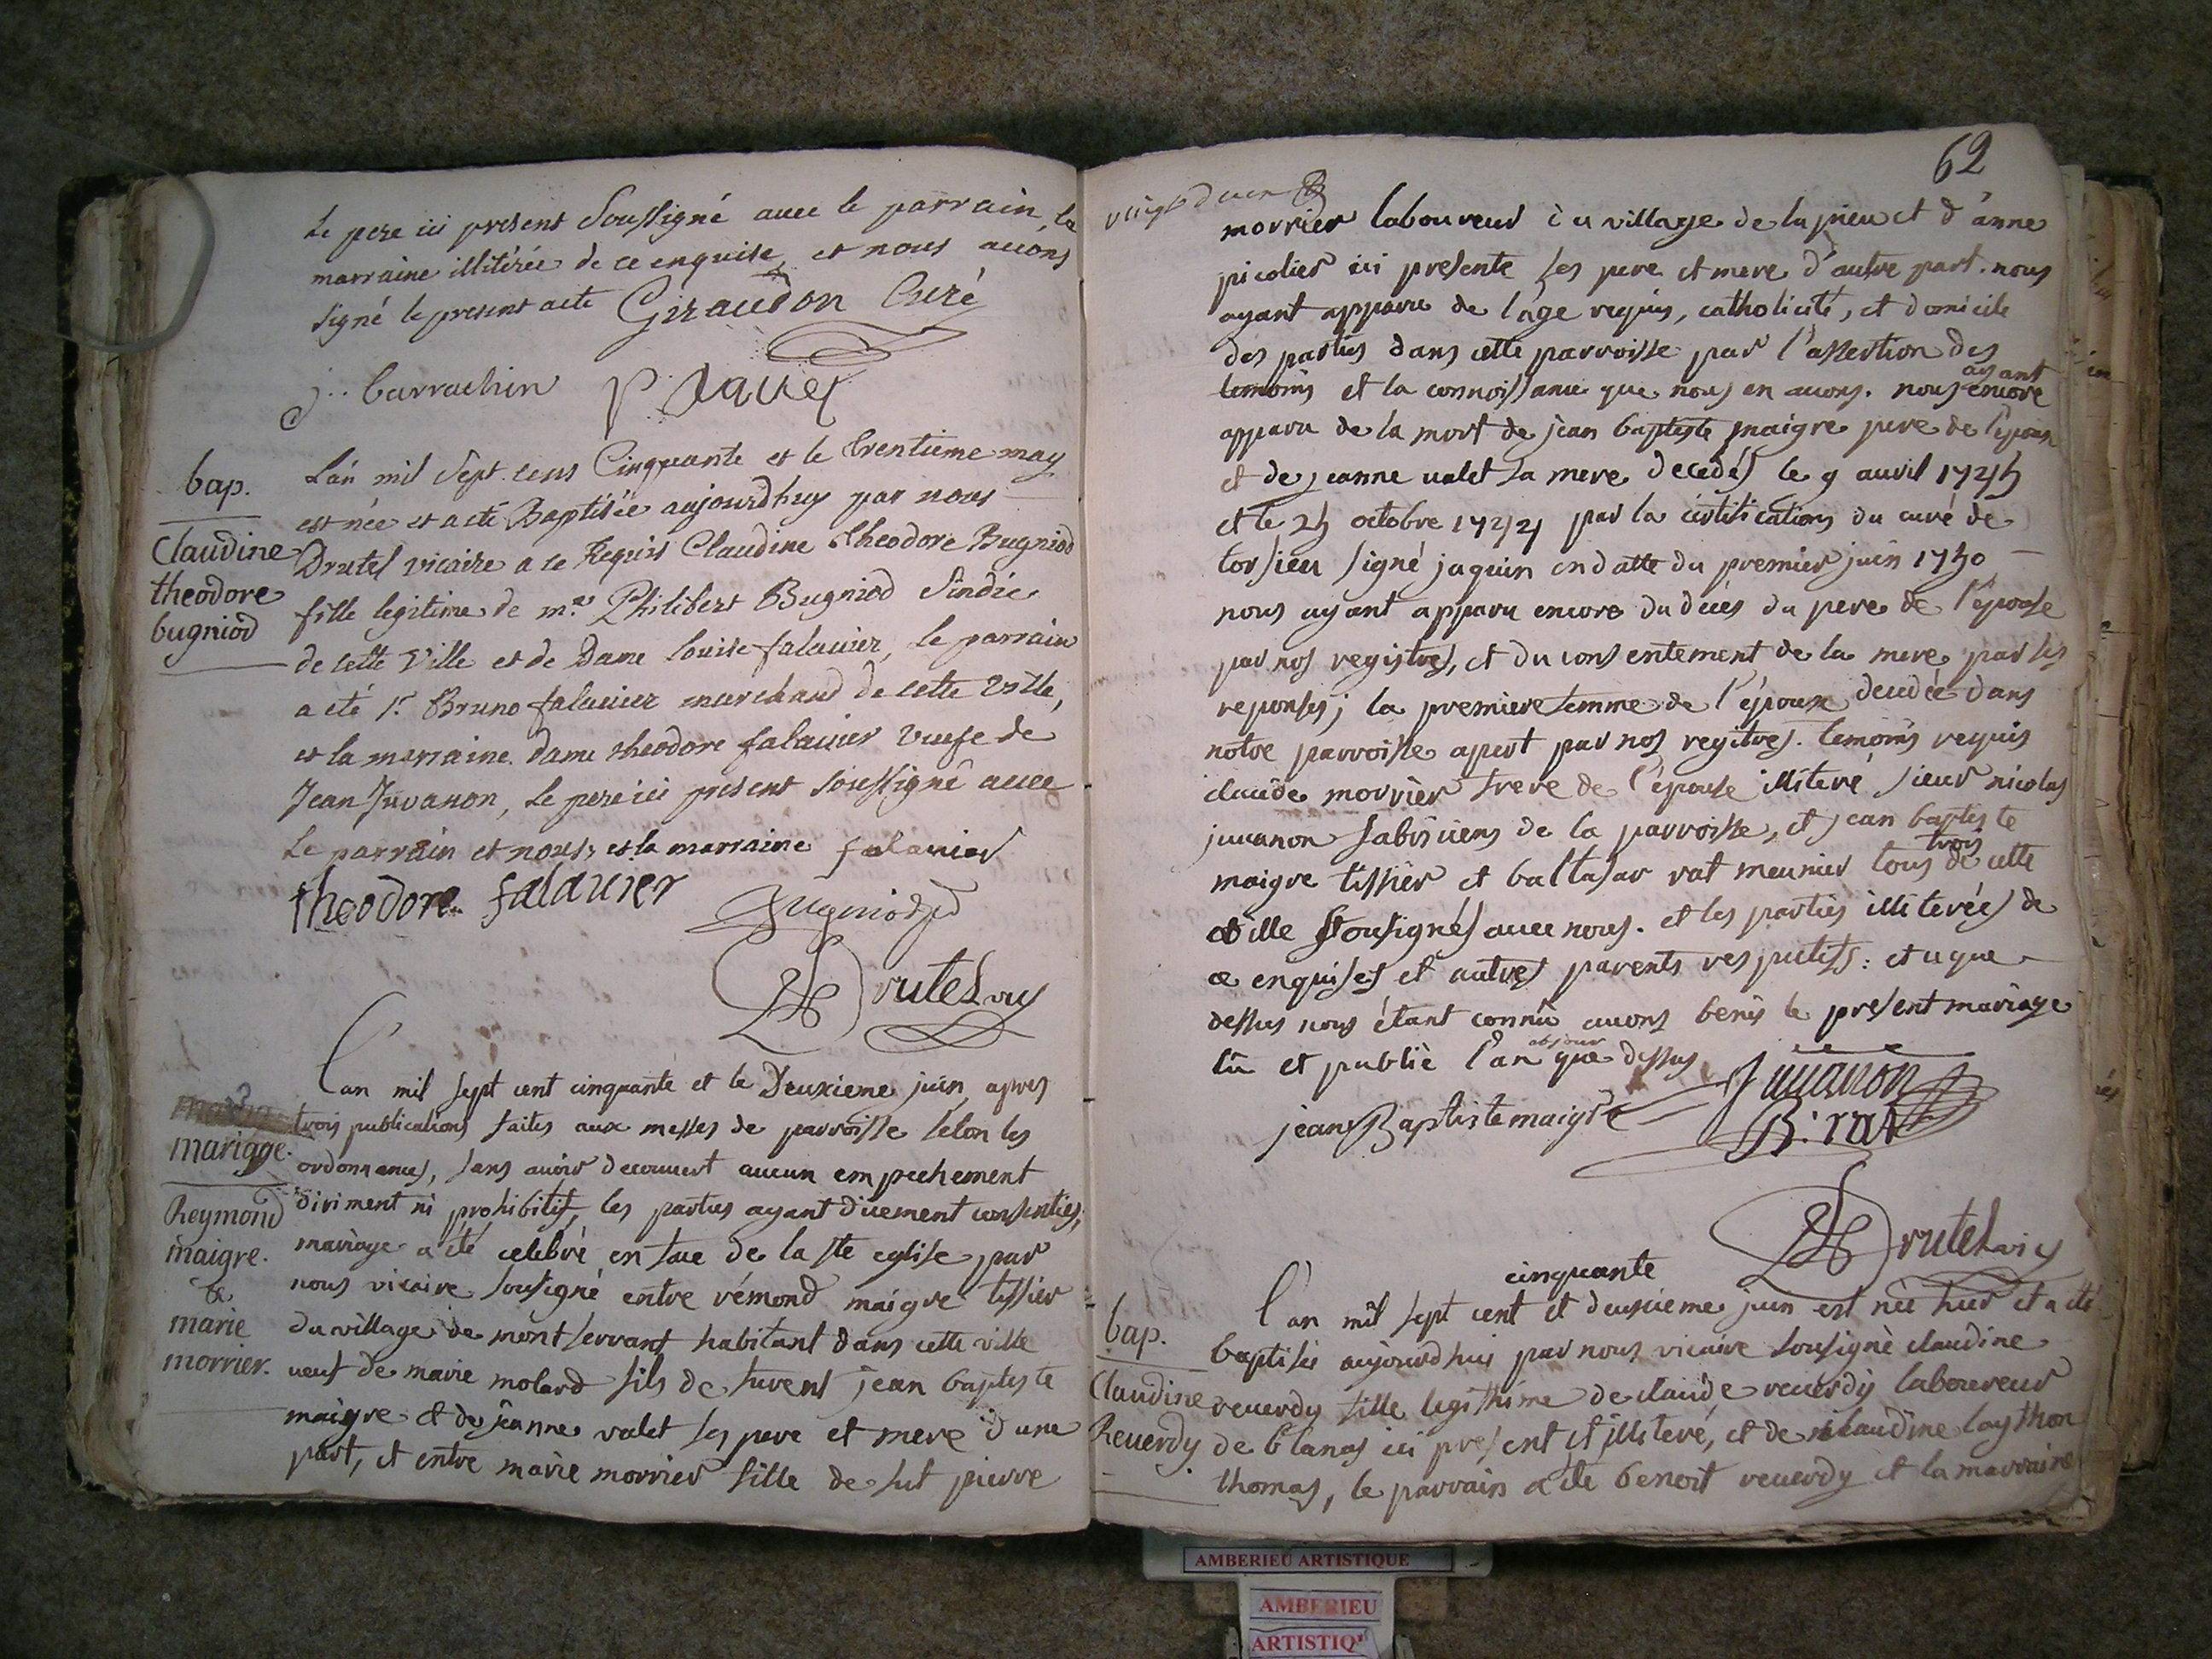 le pere ici present Soussigné avec le parrain, la
marraine illitérée de ce enquise, et nous avons
signé le present acte Giraudon Curé
j. barrachin
bap.
Claudine
theodore
bugniod
L'an mil Sept cens Cinquante et le trentieme may
est née et a eté Baptisée aujourdhuy par nous
Drutel vicaire a ce Requis Claudine theodore Bugniod
fille legitime de me Philibert Bugniod Sindic
de cette Ville et de Dame louise falavier, le parrain
a eté sr Bruno falavier marchand de cette Ville,
et la marraine dame theodore falavier veufe de
Jean Juvanon, le pere ici present soussigné avec
le parrain et nous, et la marraine falavier
theodore falavier
Bugniod
Drutel vic
mariage.
Reymond
maigre.
&
marie
morrier.
L'an mil sept cent cinquante et le Deuxieme juin, apres
trois publications faites aux messes de parroisse selon les
ordonnances, sans avoir decouvert aucun empechement
diriment ni prohibitif, les parties ayant düement consenties,
mariage a été celebré en face de la ste eglise par
nous vicaire sousigné entre rémond maigre tissier
du village de montservant habitant dans cette ville
veuf de marie molard fils de furent jean baptiste
maigre et de jeanne valet ses pere et mere d'une
part, et entre marie morrier fille de fut pierre
62
morrier laboureur du village de la pieu et d'anne
picolier ici presente ses pere et mere d'autre part. nous
ayant apparu de l'age requis, catholicité, et domicile
des parties dans cette parroisse par l'assertion des
temoins et la connoissance que nous en avons. nous ayant encore
apparu de la mort de jean baptiste maigre pere de l'epoux
et de jeanne valet sa mere decedés le 9 avril
et le octobre par la certifications du curé de
torsieu signé jaquin en datte du premier juin 1750
nous ayant apparu encore du décès du pere de l'épouse
par nos registres, et du consentement de la mere par ses
reponses; la premiere femme de l'époux decedée dans
notre parroisse apert par nos regitres. temoins requis
claude morrier frere de l'épouse illiteré sieur nicolas
juvanon fabriciens de la parroisse, et jean baptiste
maigre tissier et baltasar rat meunier tous trois de cette
ville sousignés avec nous. et les parties illiterées de
ce enquises et autres parents respectifs: et ce que
dessus nous étant connu avons benis le present mariage
lu et publié l'an et jour que dessus
Juvanon
jean Baptiste maigre
B. rat
Drutel vic
bap.
Claudine
Reuerdy
cinquante
L'an mil sept cent et deuxieme juin est née hier et a été
baptisée aujourdhui par nous vicaire sousigné claudine
reuerdy fille legithime de claude reuerdy laboureur
de blanas ici present et illiteré, et de claudine laython
thomas, le parrain a été benoit reuerdy et la marraine
AMBERIEU ARTISTIQUE
AMBERIEU
ARTISTIQ